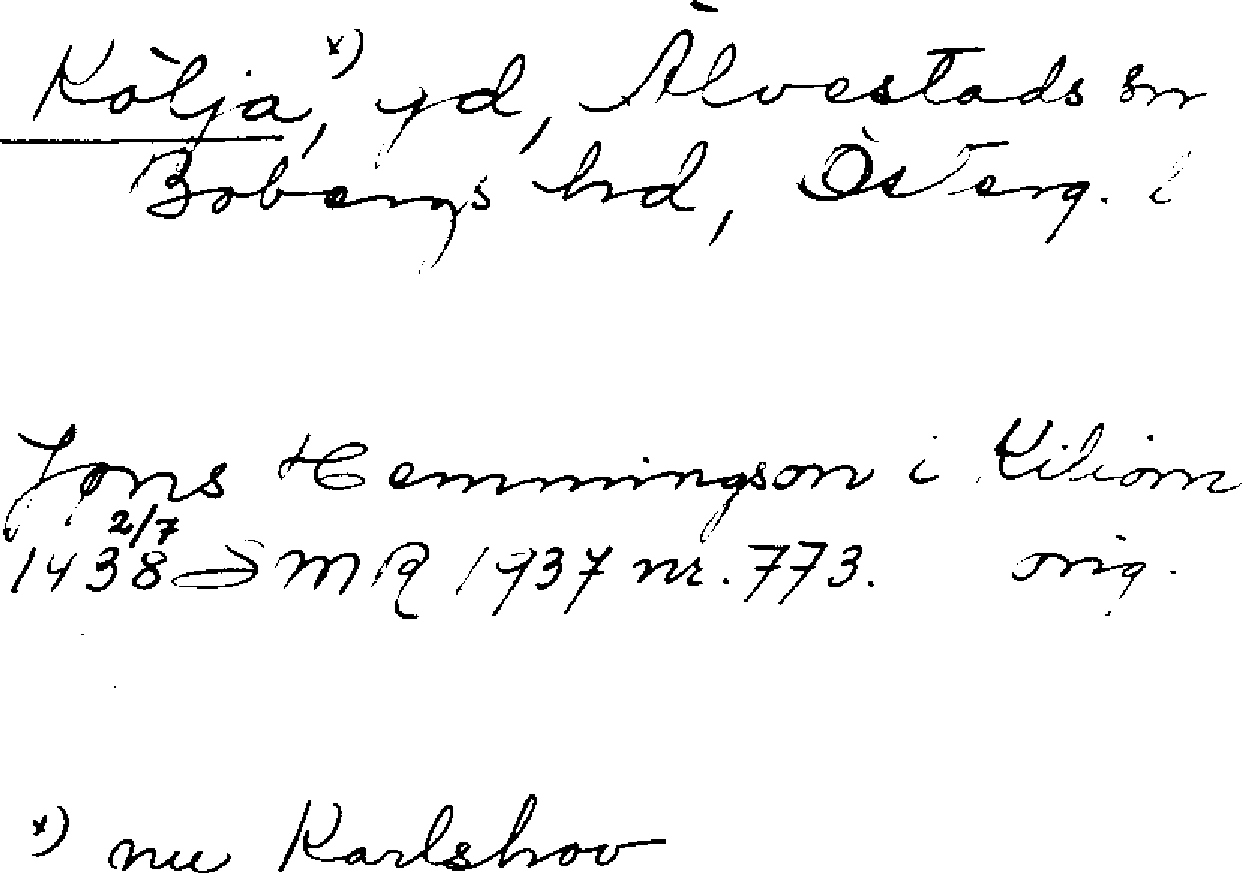 Kölja,x) gd, Älvestads sn
Bobergs hd, Österg. l
Jøns Hemmingson i Kiliom
1438 2/7 SMR 1937 nr. 773. orig.
x) nu Karlshov